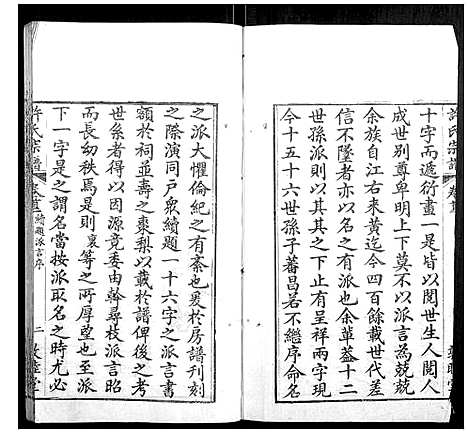 許氏宗譜
卷首
十字而遞衍畫一是皆以閱世生人閱人
成世別尊卑明上下莫不以派言為兢兢
余族自江右來黃迄今四百餘載世代差
信不墜者亦以名之有派也余莘菴十二
世孫派則以其其之下有呈祥兩字現
今十五十六世孫子蕃昌若不繼序命名
之派大懼倫紀之有紊也爰於房譜刊刻
之際演同戶眾續題一十六字之派言書
額於祠並壽之棗梨以載於譜俾後之考
世系者得以因源竟委由幹尋枝派言昭
而長幼秩焉是則裒等之所厚望也至派
下一字是之謂名當按派取名之時尤必
許氏宗譜
卷首
續顯派言序
二
敦睦堂